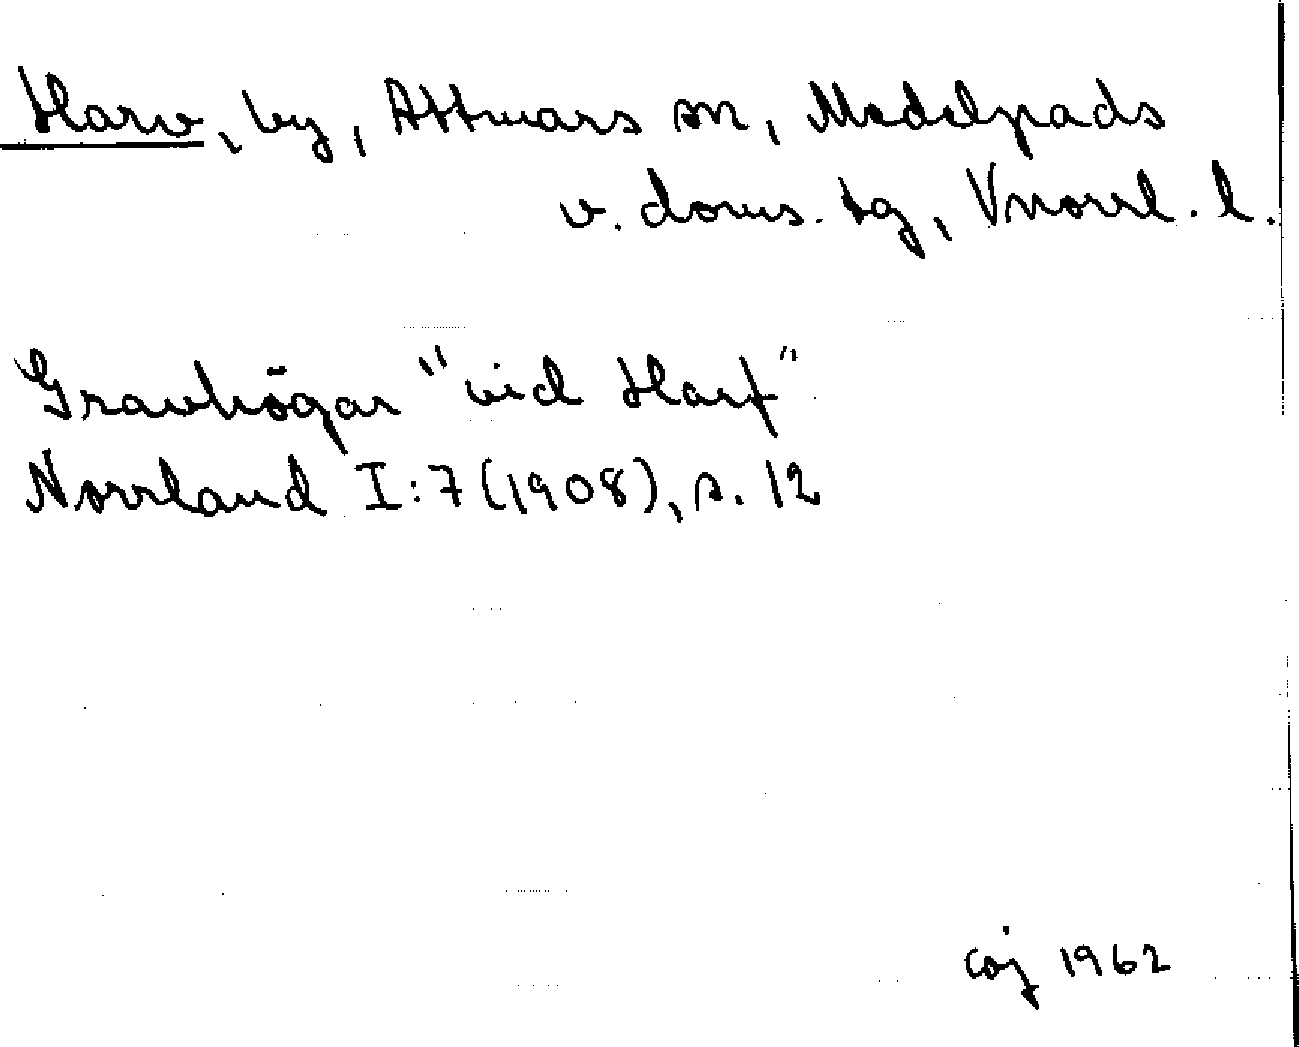 Harv, by, Attmars sn, Medelpads
v. doms. tg, Vnorrl. l.
Gravhögar "vid Harf"
Norrland I:7 (1908), s. 12
coj 1962